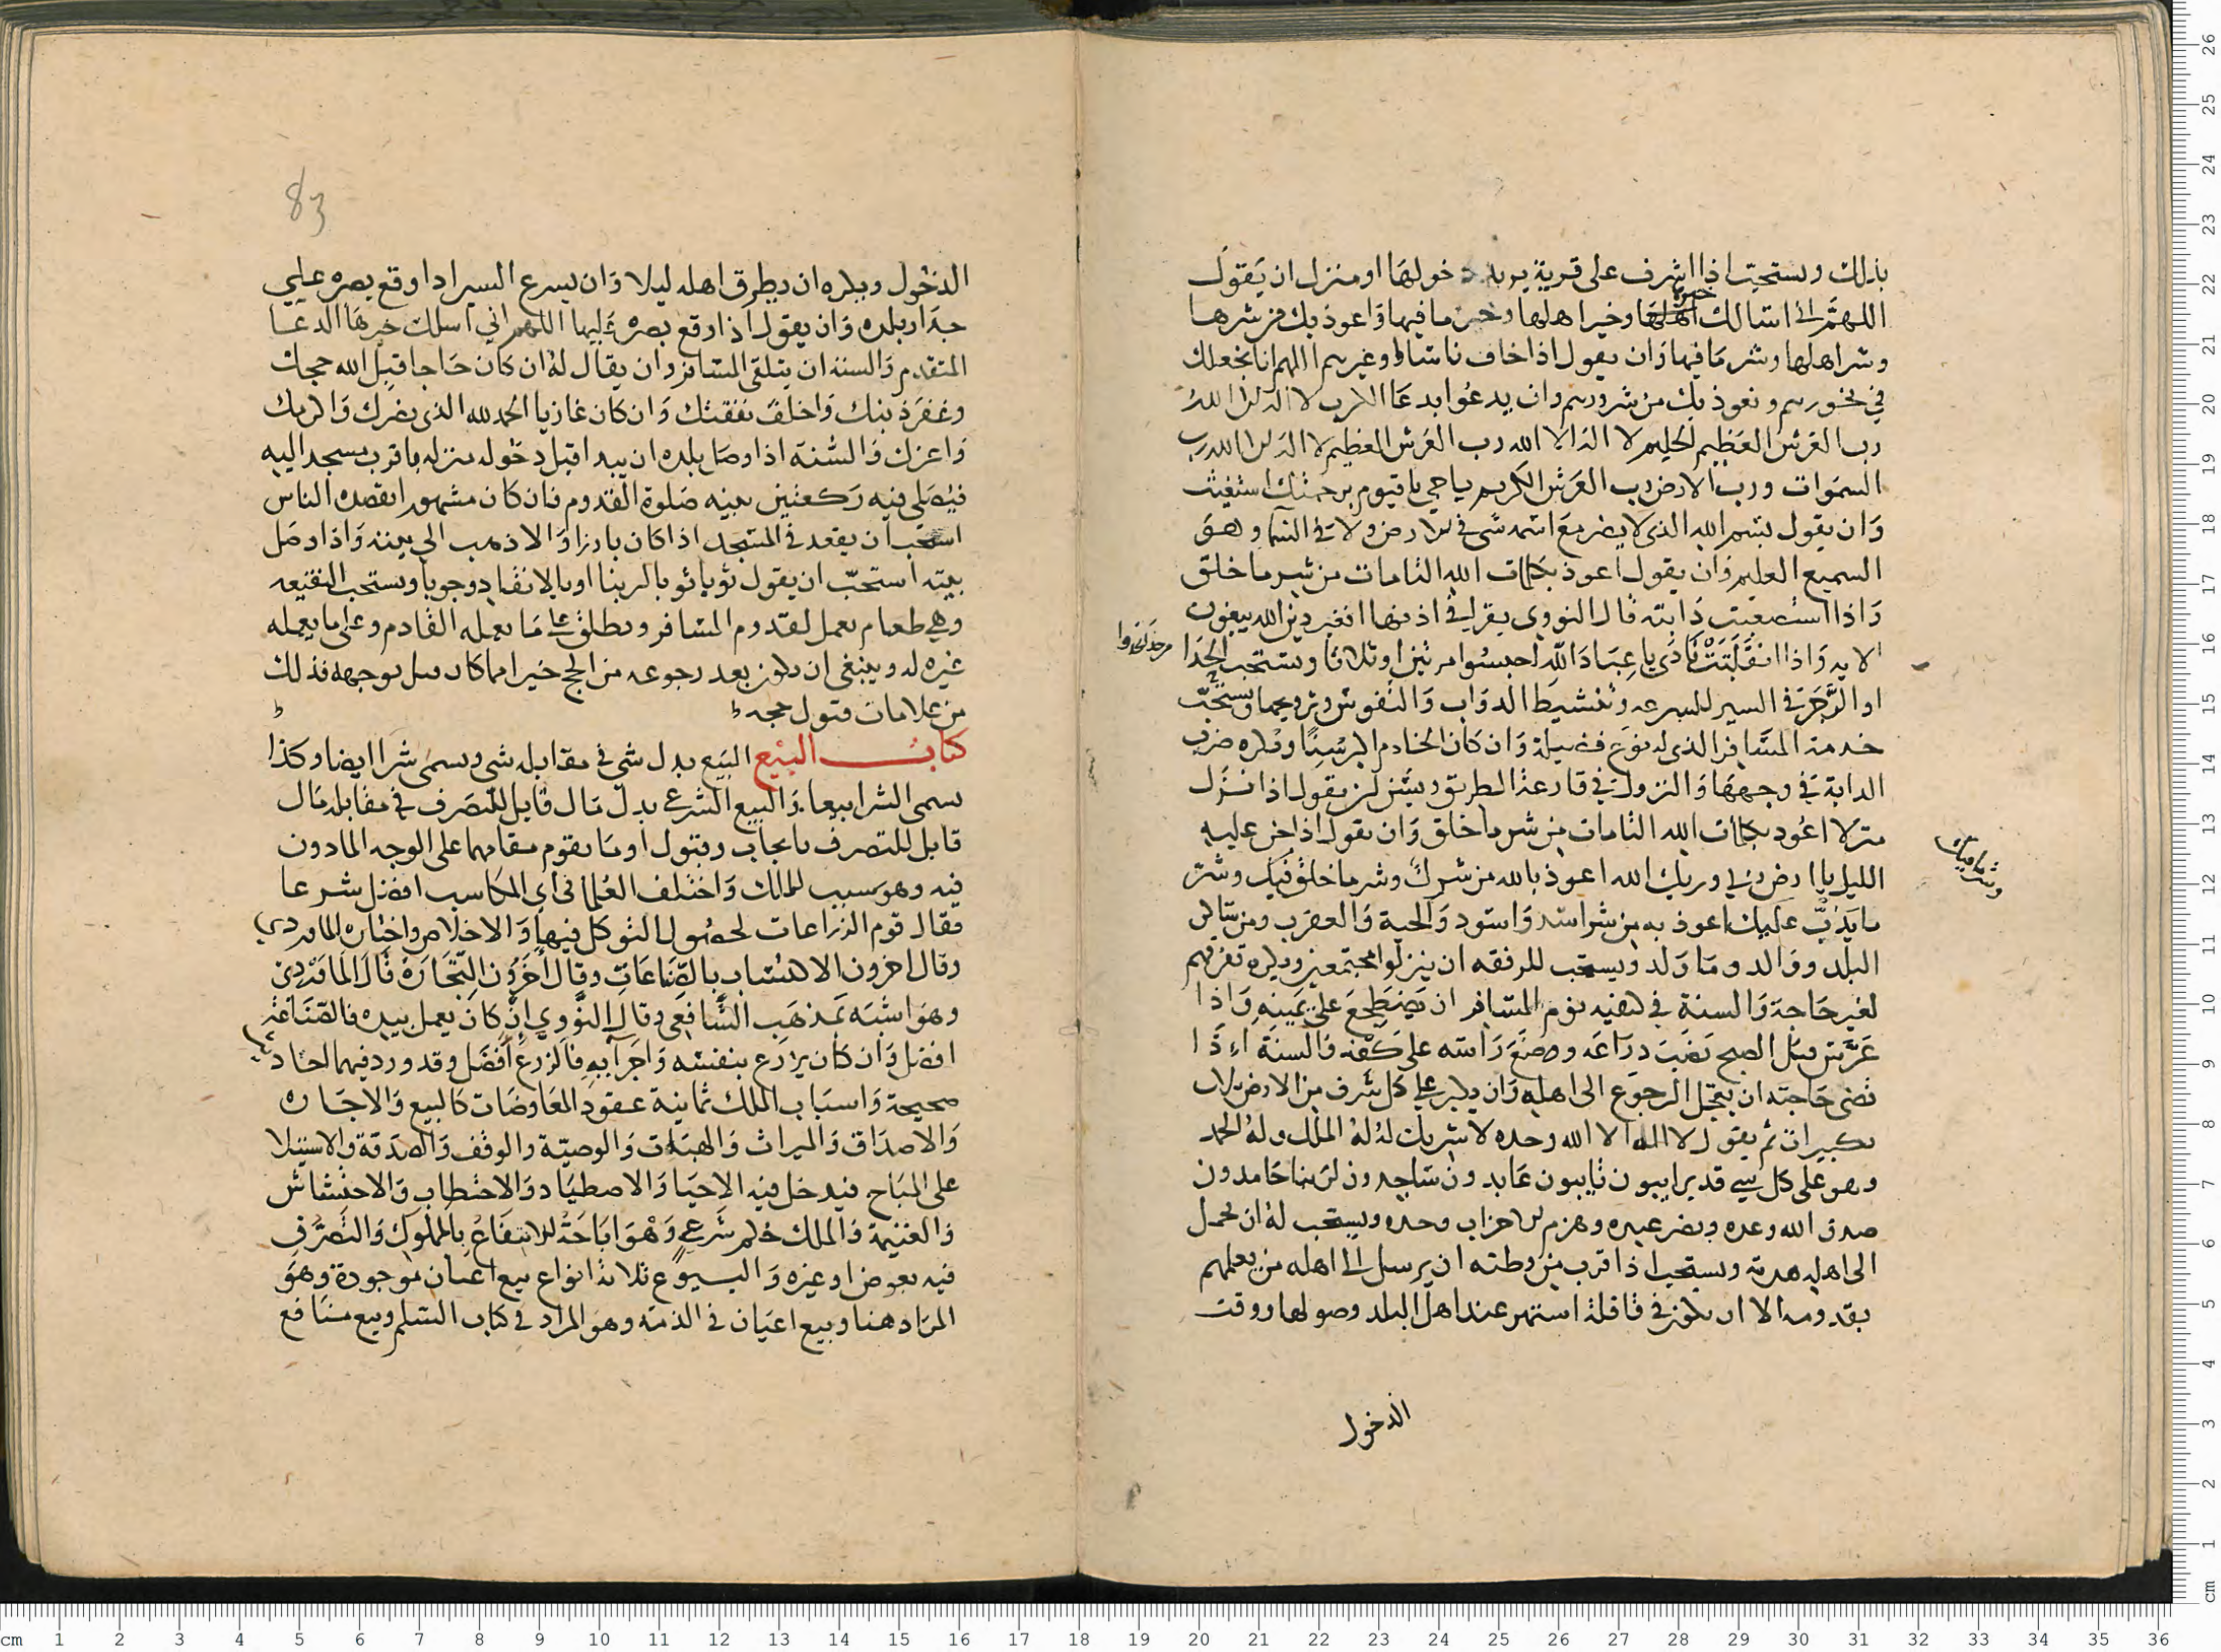 بذلك ويستحب اذا اشرف على قرية يريد دخولها او منزل ان يقول
اللهم اني اسالك خيرها وخير اهلها وخير ما فيها واعوذ بك من شرها
وشر اهلها وشر ما فيها وان يقول اذا خاف ناسا او غيرهم اللهم انا نجعلك
في نحورهم ونعوذ بك من شرورهم وان يدعوا بدعا الكرب لا اله الا الله
رب العرش العظيم الحليم لا اله الا الله رب العرش العظيم لا اله الا الله رب
السموات ورب الارض رب العرش الكريم يا حي يا قيوم برحمتك استغيث
وان يقول بسم الله الذي لا يضر مع اسمه شي في الارض ولا في السما وهو
السميع العليم وان يقول اعوذ بكلمات الله التامات من شر ما خلق
واذا استصعبت دابته قال النووي يقرا في اذنها افغير دين الله يبغون
الايه واذا انفلتت نادى يا عباد الله احبسوا مرتين او ثلاثا ويستحب الحدا
او الرجز في السير للسرعه وتنشيط الدواب والنفوس وترويحها ويستحب
خدمة المسافر الذي له نوع فضيلة وان كان الخادم اكبر سنا ويكره ضرب
الدابة في وجهها والنزول في قارعة الطريق ويسن ان يقول اذا نزل
منزلا اعوذ بكلمات الله التامات من شر ما خلق وان يقول اذا جن عليه
الليل يا ارض ربي وربك الله اعوذ بالله من شرك وشر ما خلق فيك وشر
وشر ما فيك
ما يدب عليك اعوذ به من شر اسد واسود والحية والعقرب ومن ساكن
البلد ووالد وما ولد ويستحب للرفقه ان ينزلوا مجتمعين ويكره تفرقهم
لغير حاجة والسنة في كيفيه نوم المسافر ان يضطجع على يمينه واذا
عرس قبل الصبح نصب دراعه ووضع راسه على كفه والسنة اذا
قضى حاجته ان يعجل الرجوع الى اهله وان يكبر على كل شرف من الارض ثلاث
تكبيرات ثم يقول لا اله الا الله وحده لا شريك له له الملك وله الحمد
وهو على كل شي قدير ايبون تايبون عابدون ساجدون لربنا حامدون
صدق الله وعده ونصر عبده وهزم الاحزاب وحده ويستحب له ان يحمل
الى اهله هدية ويستحب اذا قرب من وطنه ان يرسل الى اهله من يعلمهم
بقدومه الا ان يكون في قافلة اشتهر عند اهل البلد وصولها ووقت
الدخول
83
الدخول ويكره ان يطرق اهله ليلا وان يسرع السير اذا وقع بصره على
جدار بلده وان يقول اذا وقع بصره عليها اللهم اني اسلك خيرها الدعا
المتقدم والسنة ان يتلقى المسافر وان يقال له ان كان حاجا قبل الله حجك
وغفر ذنبك واخلف نفقتك وان كان غازيا الحمد لله الذي نصرك واكرمك
واعزك والسنة اذا وصل بلده ان يبدا قبل دخوله منزله باقرب مسجد اليه
فيصلي فيه ركعتين بنيه صلوة القدوم فان كان مشهورا يقصده الناس
استحب ان يقعد في المسجد اذا كان بارزا والا ذهب الى بيته واذا وصل
بيته استحب ان يقول ثوبا ثوبا لربنا اوبا لا يغادر حوبا ويستحب النقيعه
وهي طعام يعمل لقدوم المسافر ويطلق على ما يعمله القادم وعلى ما يعمله
غيره له وينبغي ان يكون بعد رجوعه من الحج خيرا مما كان قبل توجهه فذلك
من علامات قبول حجه
كتاب البيع البيع بدل شي في مقابله شي ويسمى شرا ايضا وكذا
يسمى الشرا بيعا والبيع الشرعي بدل مال قابل للتصرف في مقابله مال
قابل للتصرف بايجاب وقبول او ما يقوم مقامهما على الوجه المادون
فيه وهو سبب للملك واختلف العلما في اي المكاسب افضل شرعا
فقال قوم الزراعات لحصول التوكل فيها والاخلاص واختاره الماوردي
وقال اخرون الاكتساب بالصناعات وقال اخرون التجارة قال الماوردي
وهو اشبه بمذهب الشافعي وقال النووي ان كان يعمل بيده فالصناعة
افضل وان كان يزارع بنفسه واجرايه فالزرع افضل وقد ورد فيهما احاديث
صحيحة واسباب الملك ثمانية عقود المعاوضات كالبيع والاجاره
والاصداق والميراث والهبات والوصية والوقف والصدقة والاستيلا
على المباح فيدخل فيه الاحيا والاصطياد والاحتطاب والاحتشاش
والغنيمة والملك حكم شرعي وهو اباحة الانتفاع بالمملوك والتصرف
فيه بعوض او غيره والبيوع ثلاثة انواع بيع اعيان موجودة وهو
المراد هنا وبيع اعيان في الذمه وهو المراد في كتاب السلم وبيع منافع